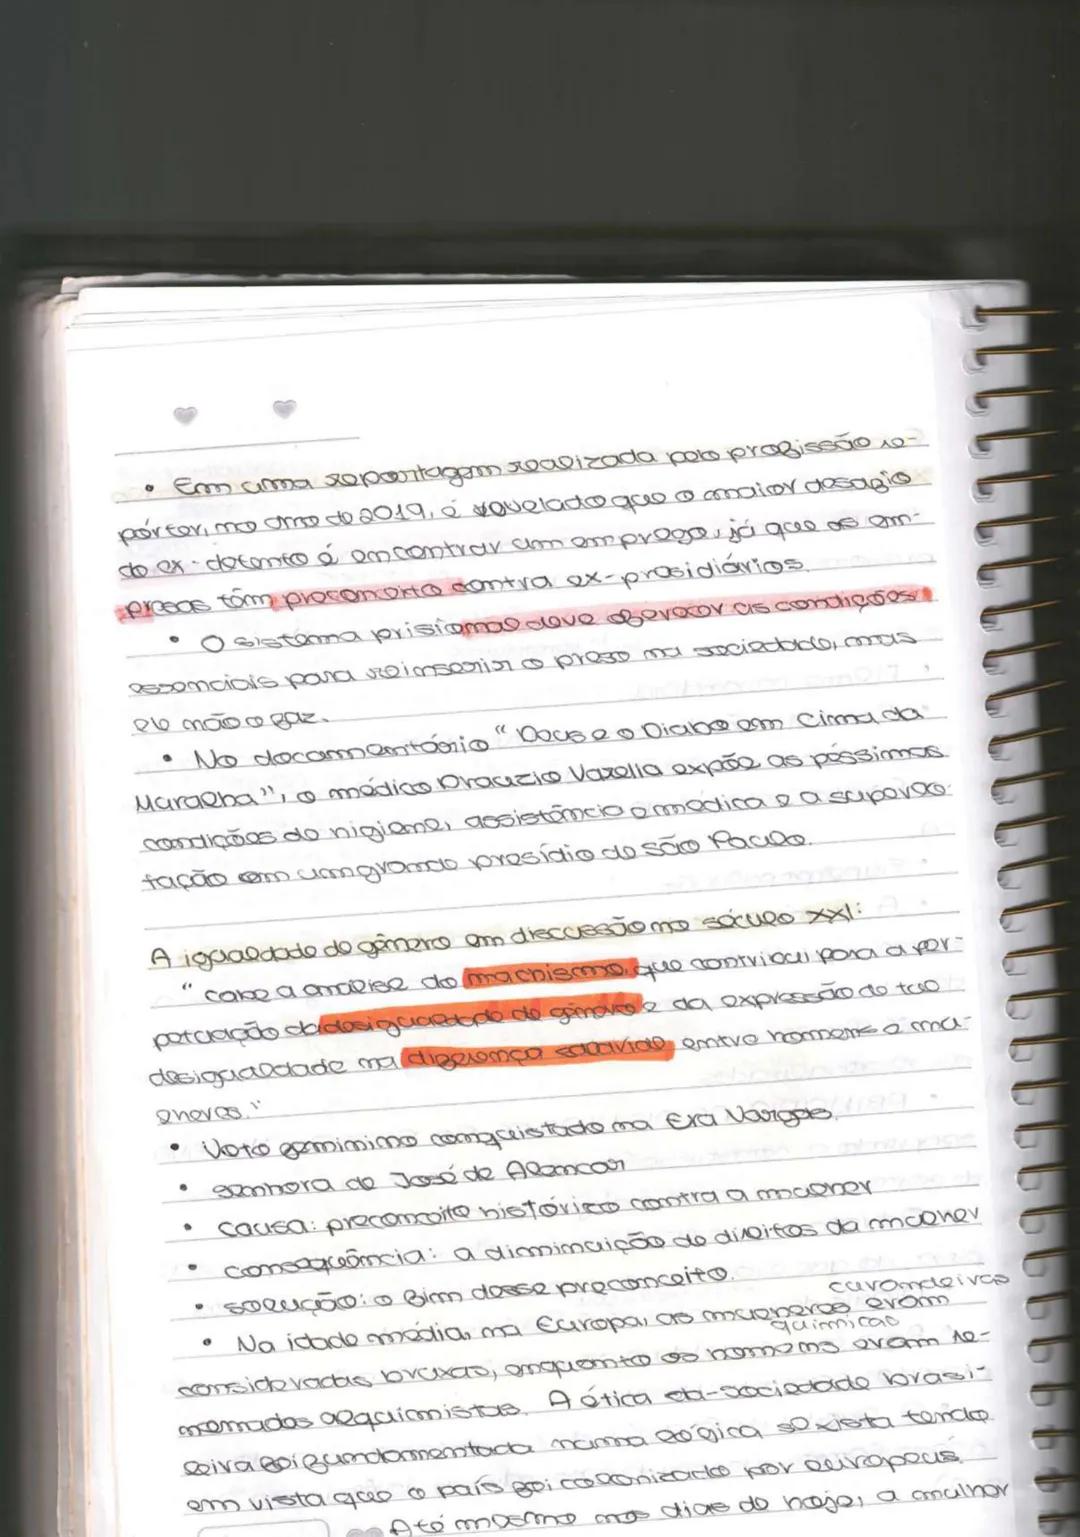 • Em uma reportagem realizada pelo profissão re-
pórter, no ano de 2019, é revelado que o maior desafio
do ex-detento é encontrar um emprego, já que as em-
presas têm preconceito contra ex-presidiários.
• O sistema prisional deve oferecer as condições
essenciais para reinserir o preso na sociedade, mas
ele não o faz.
• No documentário "Deus e o Diabo em Cima da
Muralha", o médico Drauzio Varella expõe as péssimas
condições de higiene, assistência médica e a superlo-
tação em um grande presídio de São Paulo.
A igualdade de gênero em discussão no século XXI:
"cabe a análise do machismo, que contribui para a per-
petuação da desigualdade de gênero e da expressão de tal
desigualdade na diferença salarial entre homens e mu-
lheres."
• Voto feminino conquistado na Era Vargas.
• senhora de José de Alencar
• causa: preconceito histórico contra a mulher
• consequência: a diminuição de direitos da mulher
• solução: o fim desse preconceito.
curandeiras
• Na idade média, na Europa, as mulheres eram
químicas
consideradas bruxas, enquanto os homens eram re-
nomados alquimistas. A ética da sociedade brasi-
leira foi fundamentada numa lógica sexista tendo
em vista que o país foi colonizado por europeus.
Até mesmo nos dias de hoje, a mulher